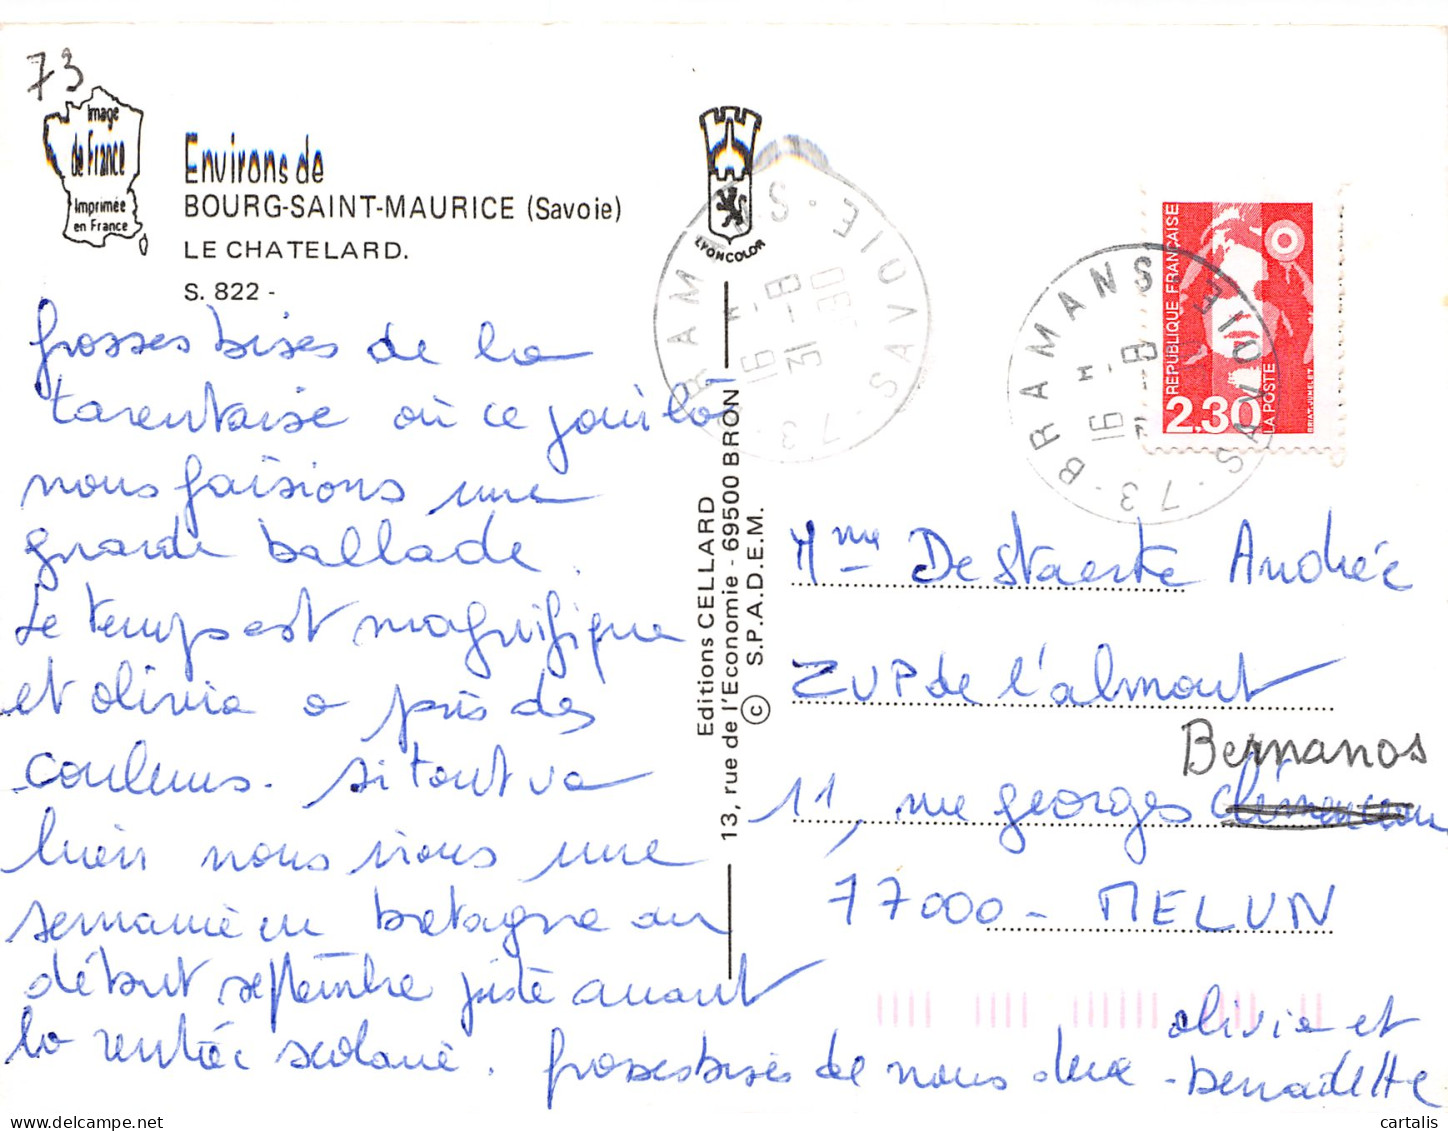 73
Image
de France
Imprimée
en France
Environs de
BOURG-SAINT-MAURICE (Savoie)
LE CHATELARD.
S. 822 -
grosses bises de la
tarentaise où ce jour là
nous faisions une
grande ballade.
Le temps est magnifique
et olivia a pris des
couleurs. si tout va
bien nous irons une
semaine en bretagne au
début septembre juste avant
la rentrée scolaire. grosses bises de nous deux - olivia et
bernadette
LYONCOLOR
Editions CELLARD
13, rue de l'Economie - 69500 BRON
© S.P.A.D.E.M.
73-BRAMANS-SAVOIE
16 H
31-8
73-BRAMANS SAVOIE
16 H
-8
REPUBLIQUE FRANÇAISE
2,30
LA POSTE
BRIAT-JUMELET
Mme De Staerke Andrée
ZUP de l'almont
Bernanos
11, rue georges
77000 - MELUN
cartalis
www.delcampe.net